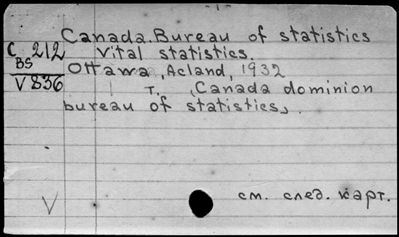 Canada. Bureau of statistics
C 212 Vital statistics.
BS Ottawa, Acland, 1932
V 836 т. , Canada dominion
bureau of statistics,
V см. след. карт.